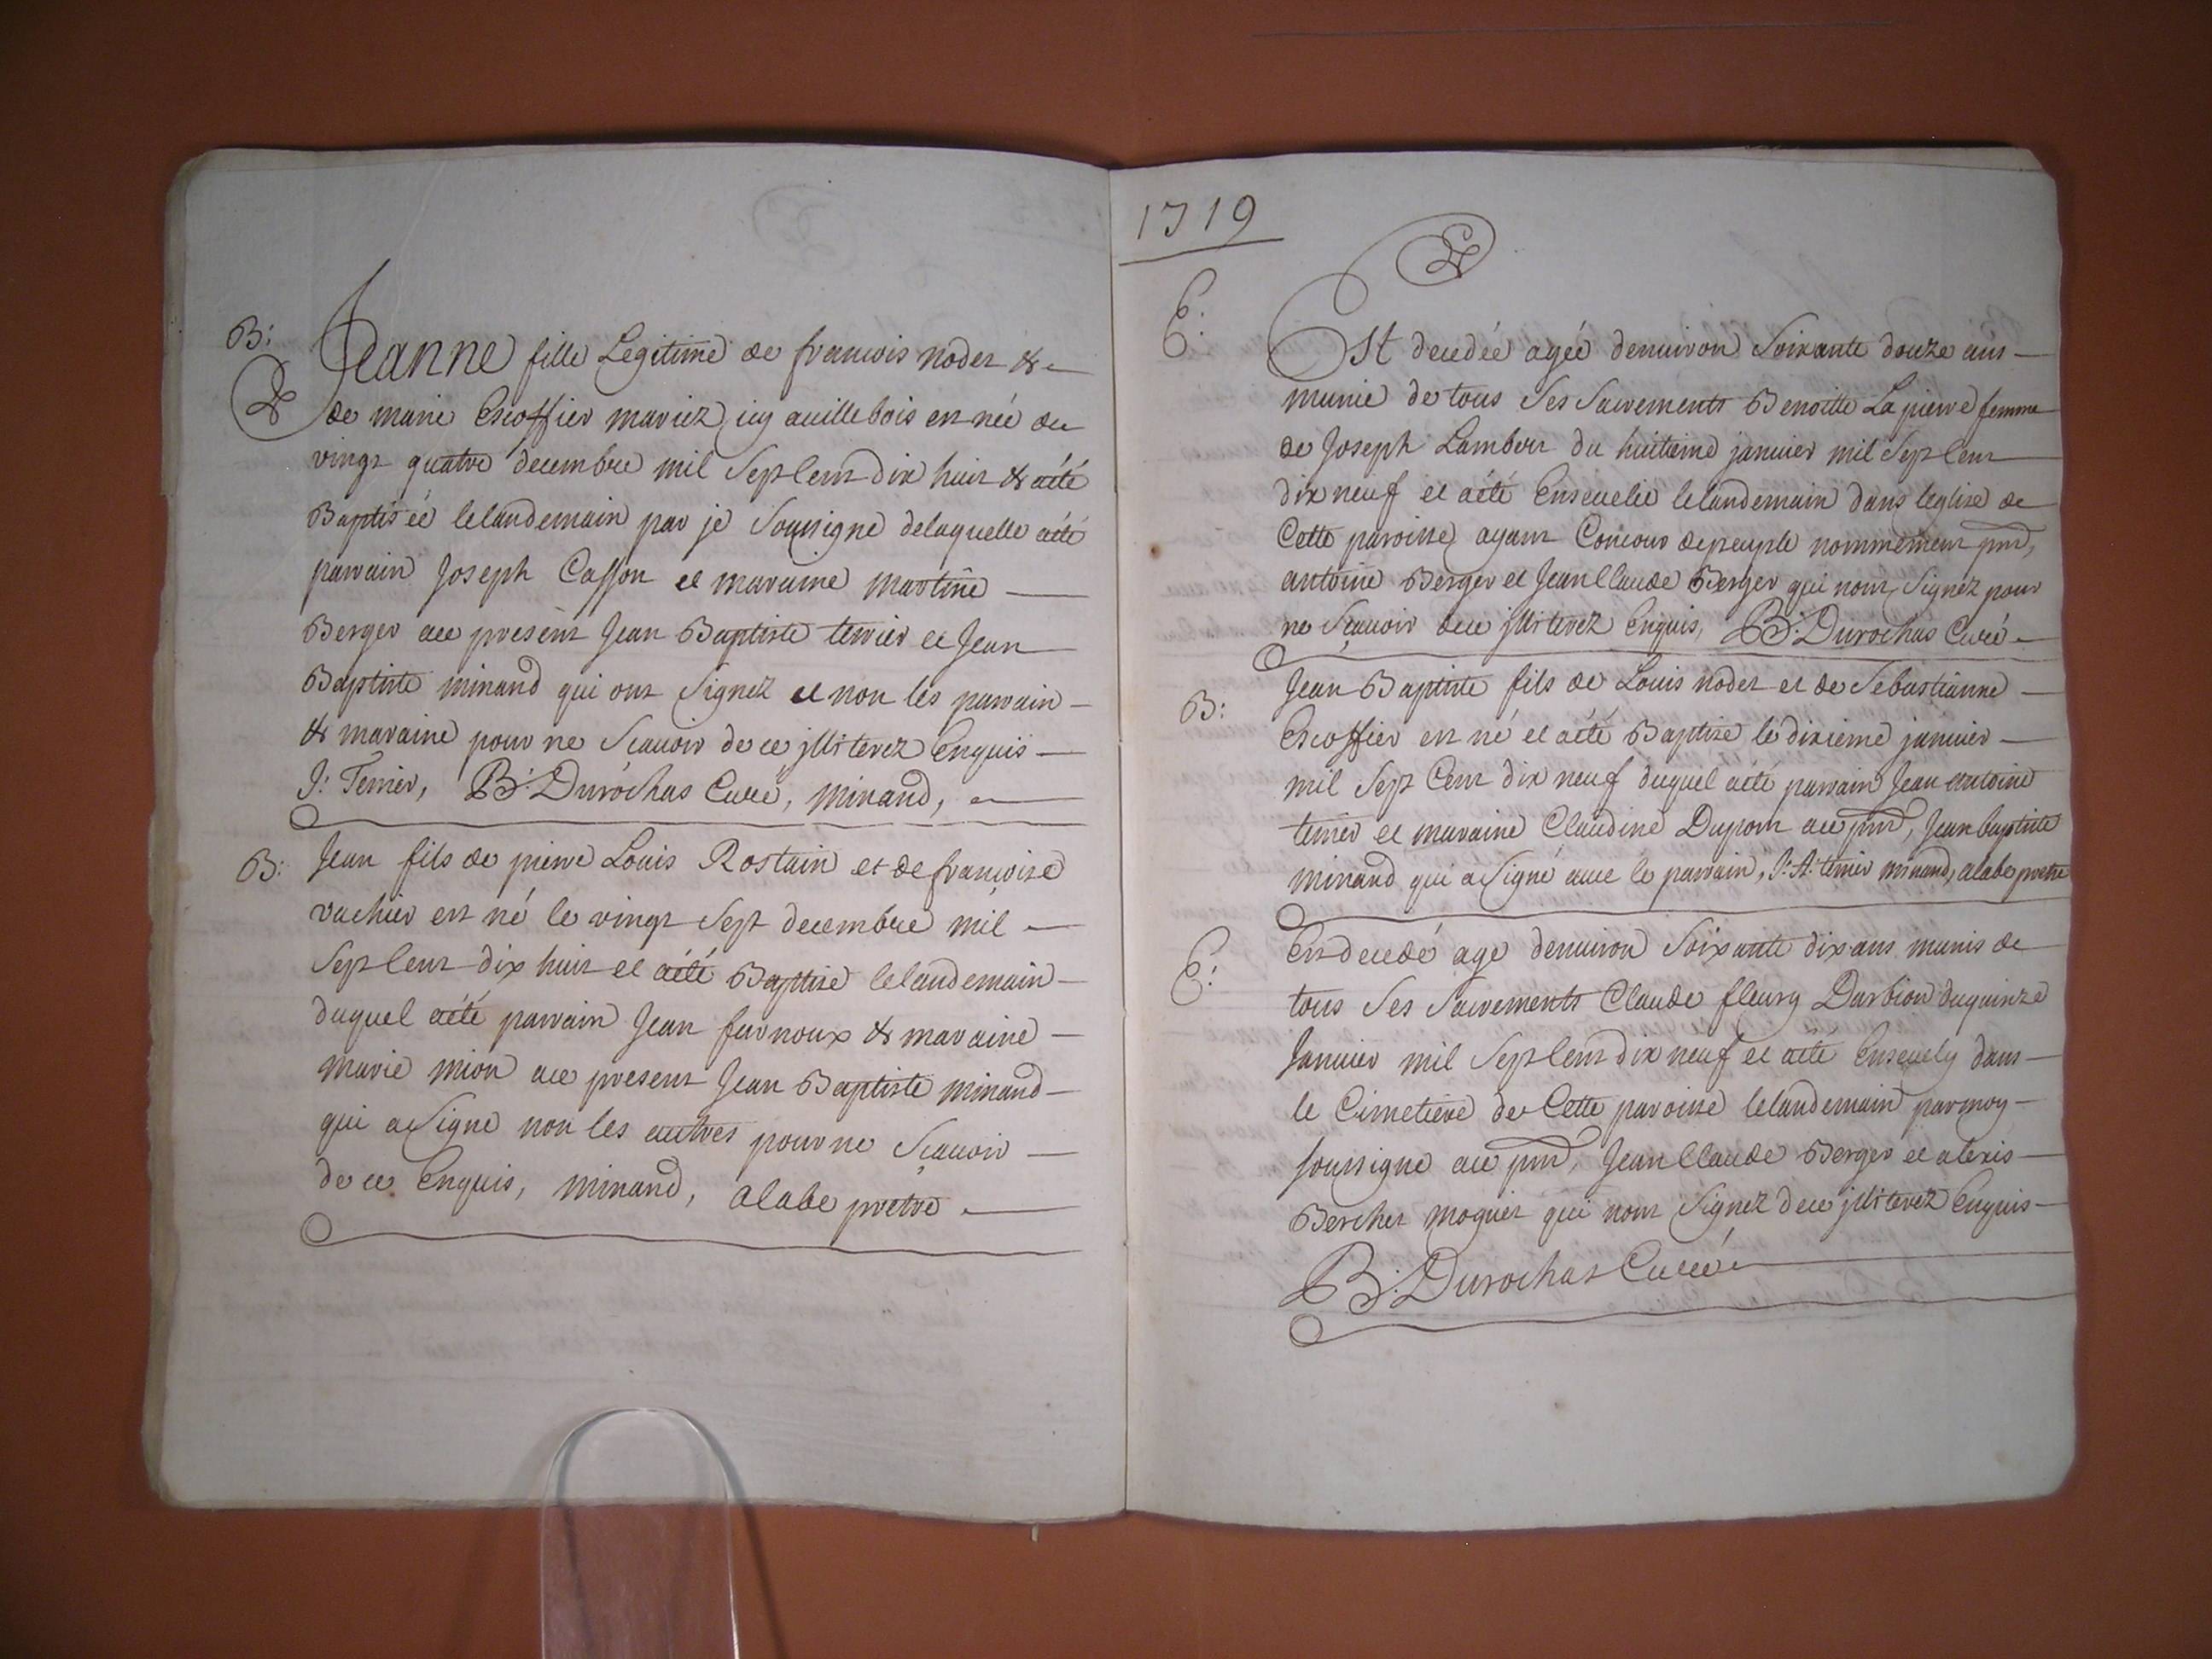 B:
Jeanne fille Legitime de francois nodet &
de marie Escoffier mariez icy auillebois est née du
vingt quatre decembre mil Sept Cent dix huit & aété
Baptisée lelandemain par je Soussigné delaquelle aété
parrain Joseph Casson et maraine martine
Berger ace present Jean Baptiste terrier et Jean
Baptiste minand qui ont Signez et non les parrain
& maraine pour ne Scauoir de ce jllsterez Enquis
J: Terrier, B: Durochas Curé, minand,
B: Jean fils de pierre Louis Rostain et de françoise
vachier est né le vingt Sept decembre mil
Sept Cent dix huit et aété Baptisé lelandemain
duquel aété parrain Jean furnoux & maraine
marie mion ace present Jean Baptiste minand
qui a Signé non les autres pour ne Sçauoir
de ce Enquis, minand, alabe pretre
1719
E:
Est decedée agée denuiron Soixante douze ans
munie de tous Ses Sacrements Benoitte La pierre femme
de Joseph Lambert du huitieme januier mil Sept Cent
dix neuf et aété Enseuelie lelandemain dans leglise de
Cette paroisse ayant Concour de peuple nommement pnt,
antoine Berger et Jean Claude Berger qui nont Signez pour
ne Sçauoir dece jllsterez Enquis, B: Durochas Curé
B: Jean Baptiste fils de Louis nodet et de Sebastianne
Escoffier est né et aété Baptisé le dixieme januier
mil Sept Cent dix neuf duquel aété parrain Jean antoine
terrier et maraine Claudine Dupont ace pnt, Jean baptiste
minand qui a Signé auec le parrain, J: A: terrier minand, alabe pretre
E: Est decedé agé denuiron Soixante dix ans munis de
tous Ses Sacrements Claude fleury Darbion duquinze
Januier mil Sept Cent dix neuf et aété Enseuely dans
le Cimetiere de Cette paroisse lelandemain parmoy
soussigné ace pnt, Jean Claude Berger et alexis
Berchet moguet qui nont Signez dece jllsterez Enquis
B: Durochas Curé